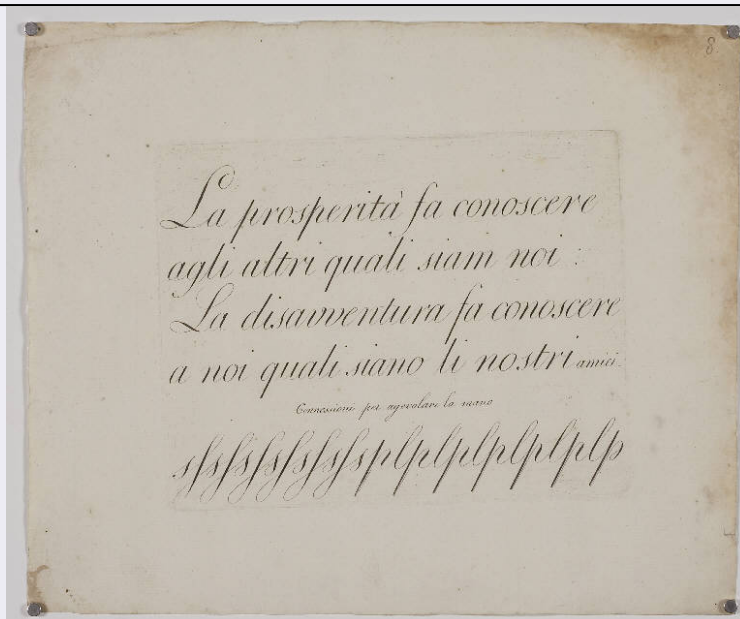 8
La prosperità fa conoscere
agli altri quali siam noi :
La disavventura fa conoscere
a noi quali siano li nostri amici.
Connessioni per agevolare la mano
sfsfsfsfsfsfsplplplplplplp